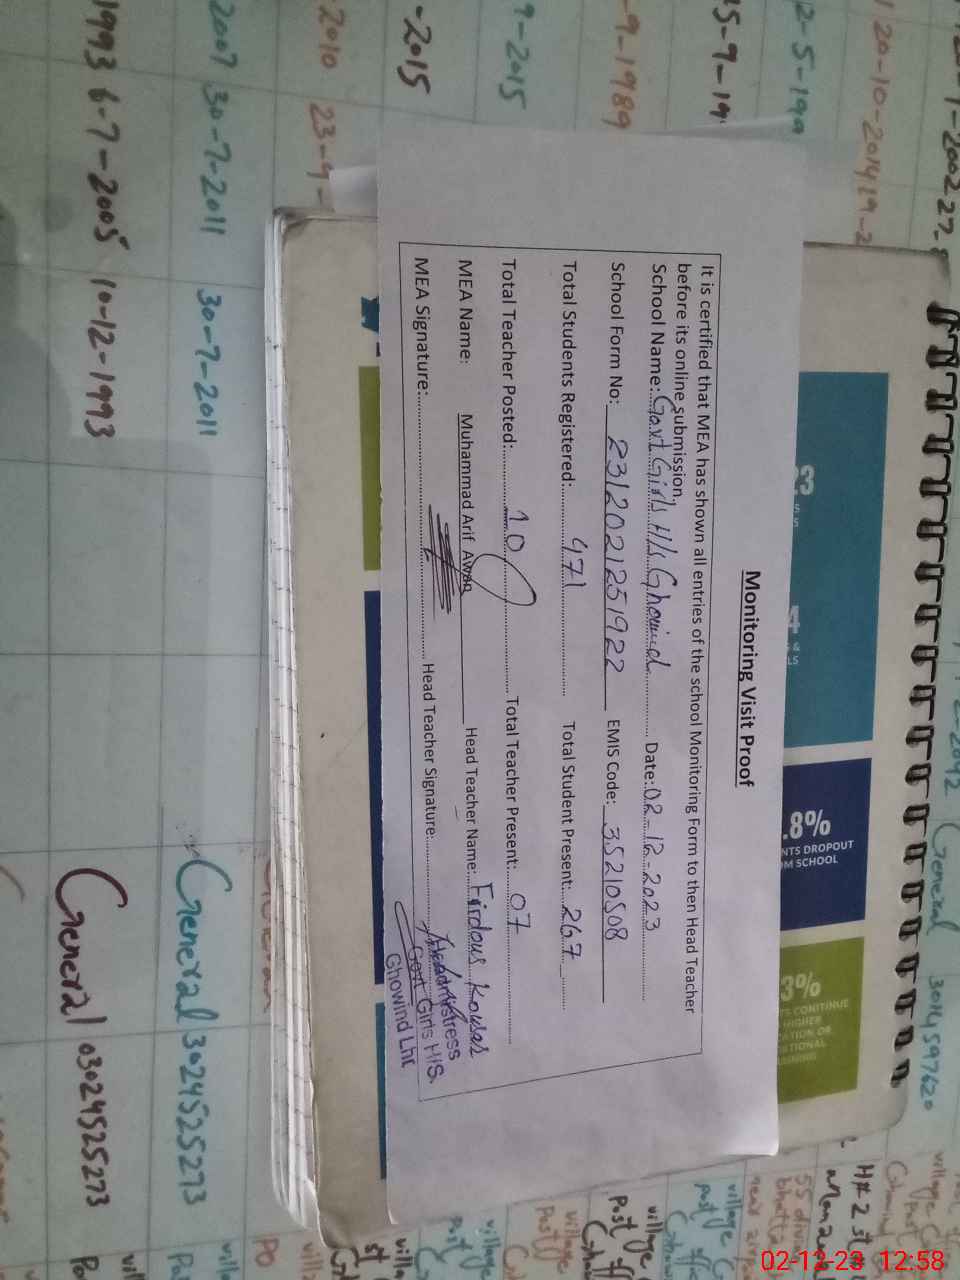 Monitoring Visit Proof
It is certified that MEA has shown all entries of the school Monitoring Form to then Head Teacher
before its online submission.
School Name: Govt Girls H/S Ghowind Date: 02-12-2023
School Form No: 2312021251922 EMIS Code: 35210508
Total Students Registered: 471 Total Student Present: 267
Total Teacher Posted: 10 Total Teacher Present: 07
MEA Name: Muhammad Arif Awan Head Teacher Name: Firdous Kousar
MEA Signature: Head Teacher Signature:
Headmistress
Govt Girls H/S.
Ghowind Lhr
.8%
NTS DROPOUT
OM SCHOOL
3%
TS CONTINUE
HIGHER
CATION OR
ATIONAL
AINING
1993 6-7-2005 10-12-1993
General 03024525273
2007 30-7-2011 30-7-2011
General 3024525273
2010 23-9-
-2015
9-2015
-9-1989
2-5-199
20-10-2014
General 3014597620
village
post office
village
post
village
Post
H# 2 st #
02-12-23 12:58